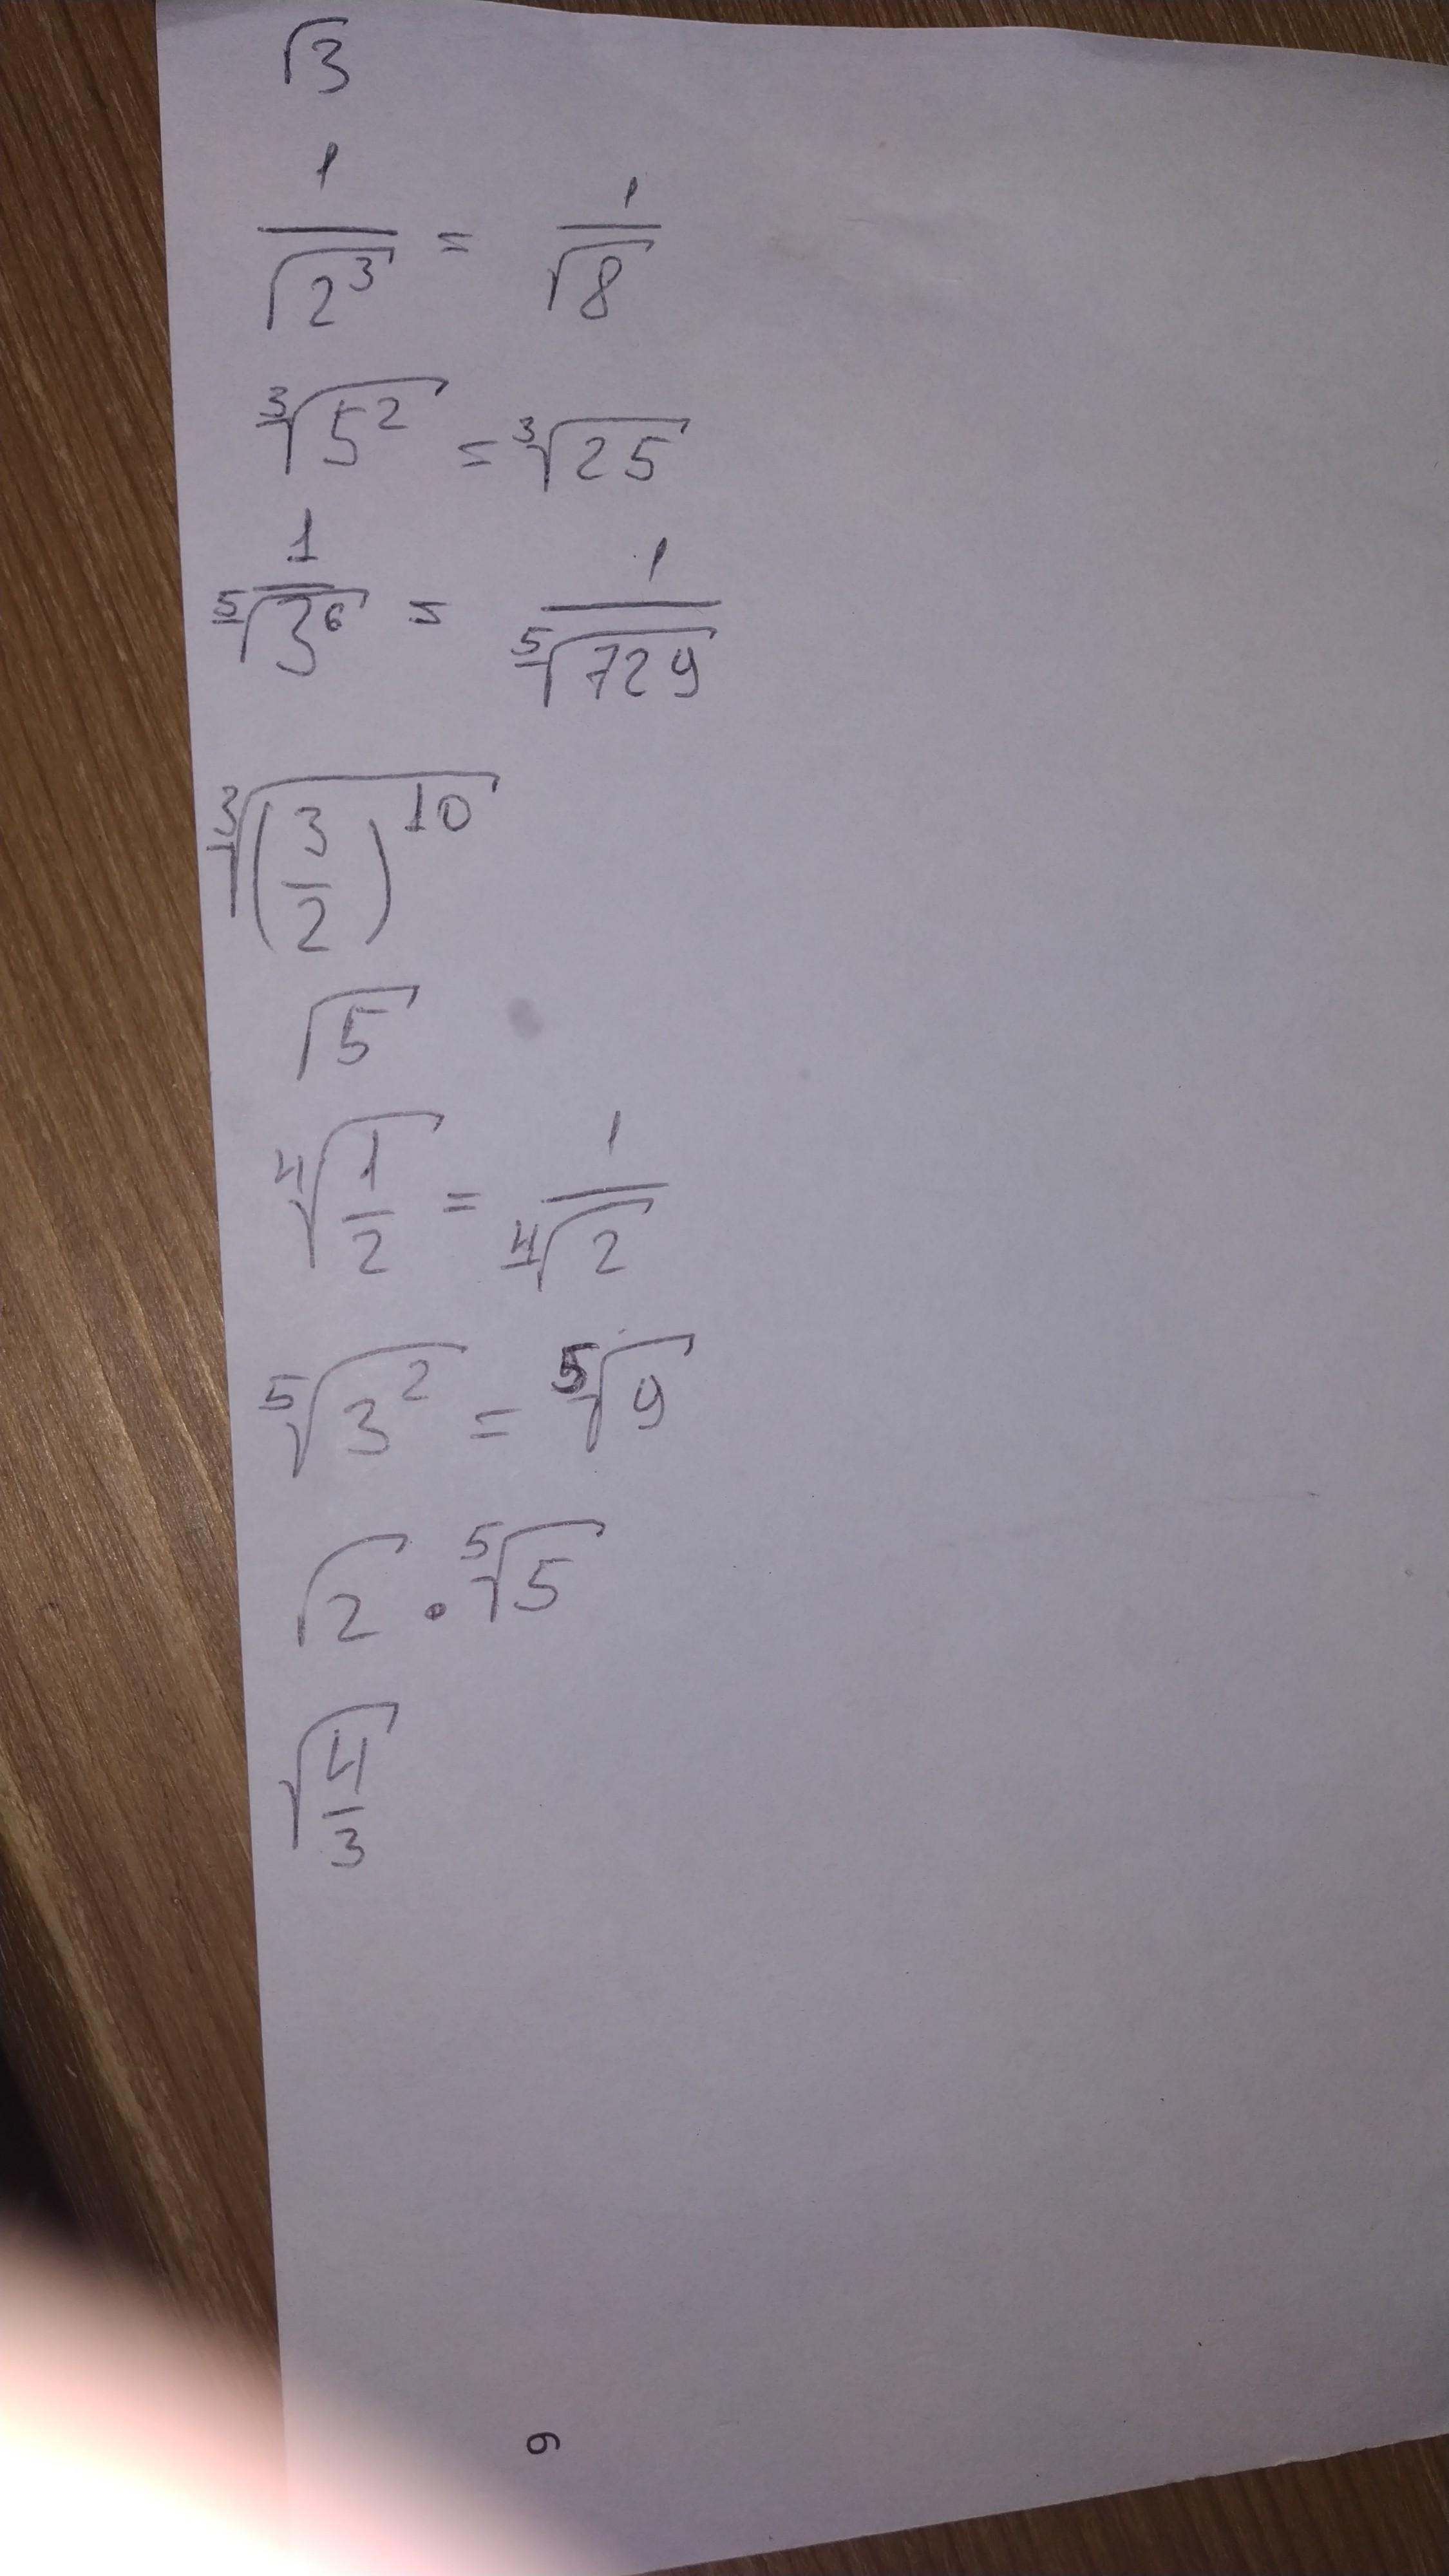 √3
1/√2³ = 1/√8
³√5² = ³√25
1/⁵√3⁶ = 1/⁵√729
³√(3/2)¹⁰
√5
⁴√1/2 = 1/⁴√2
⁵√3² = ⁵√9
√2 · ⁵√5
√4/3
6